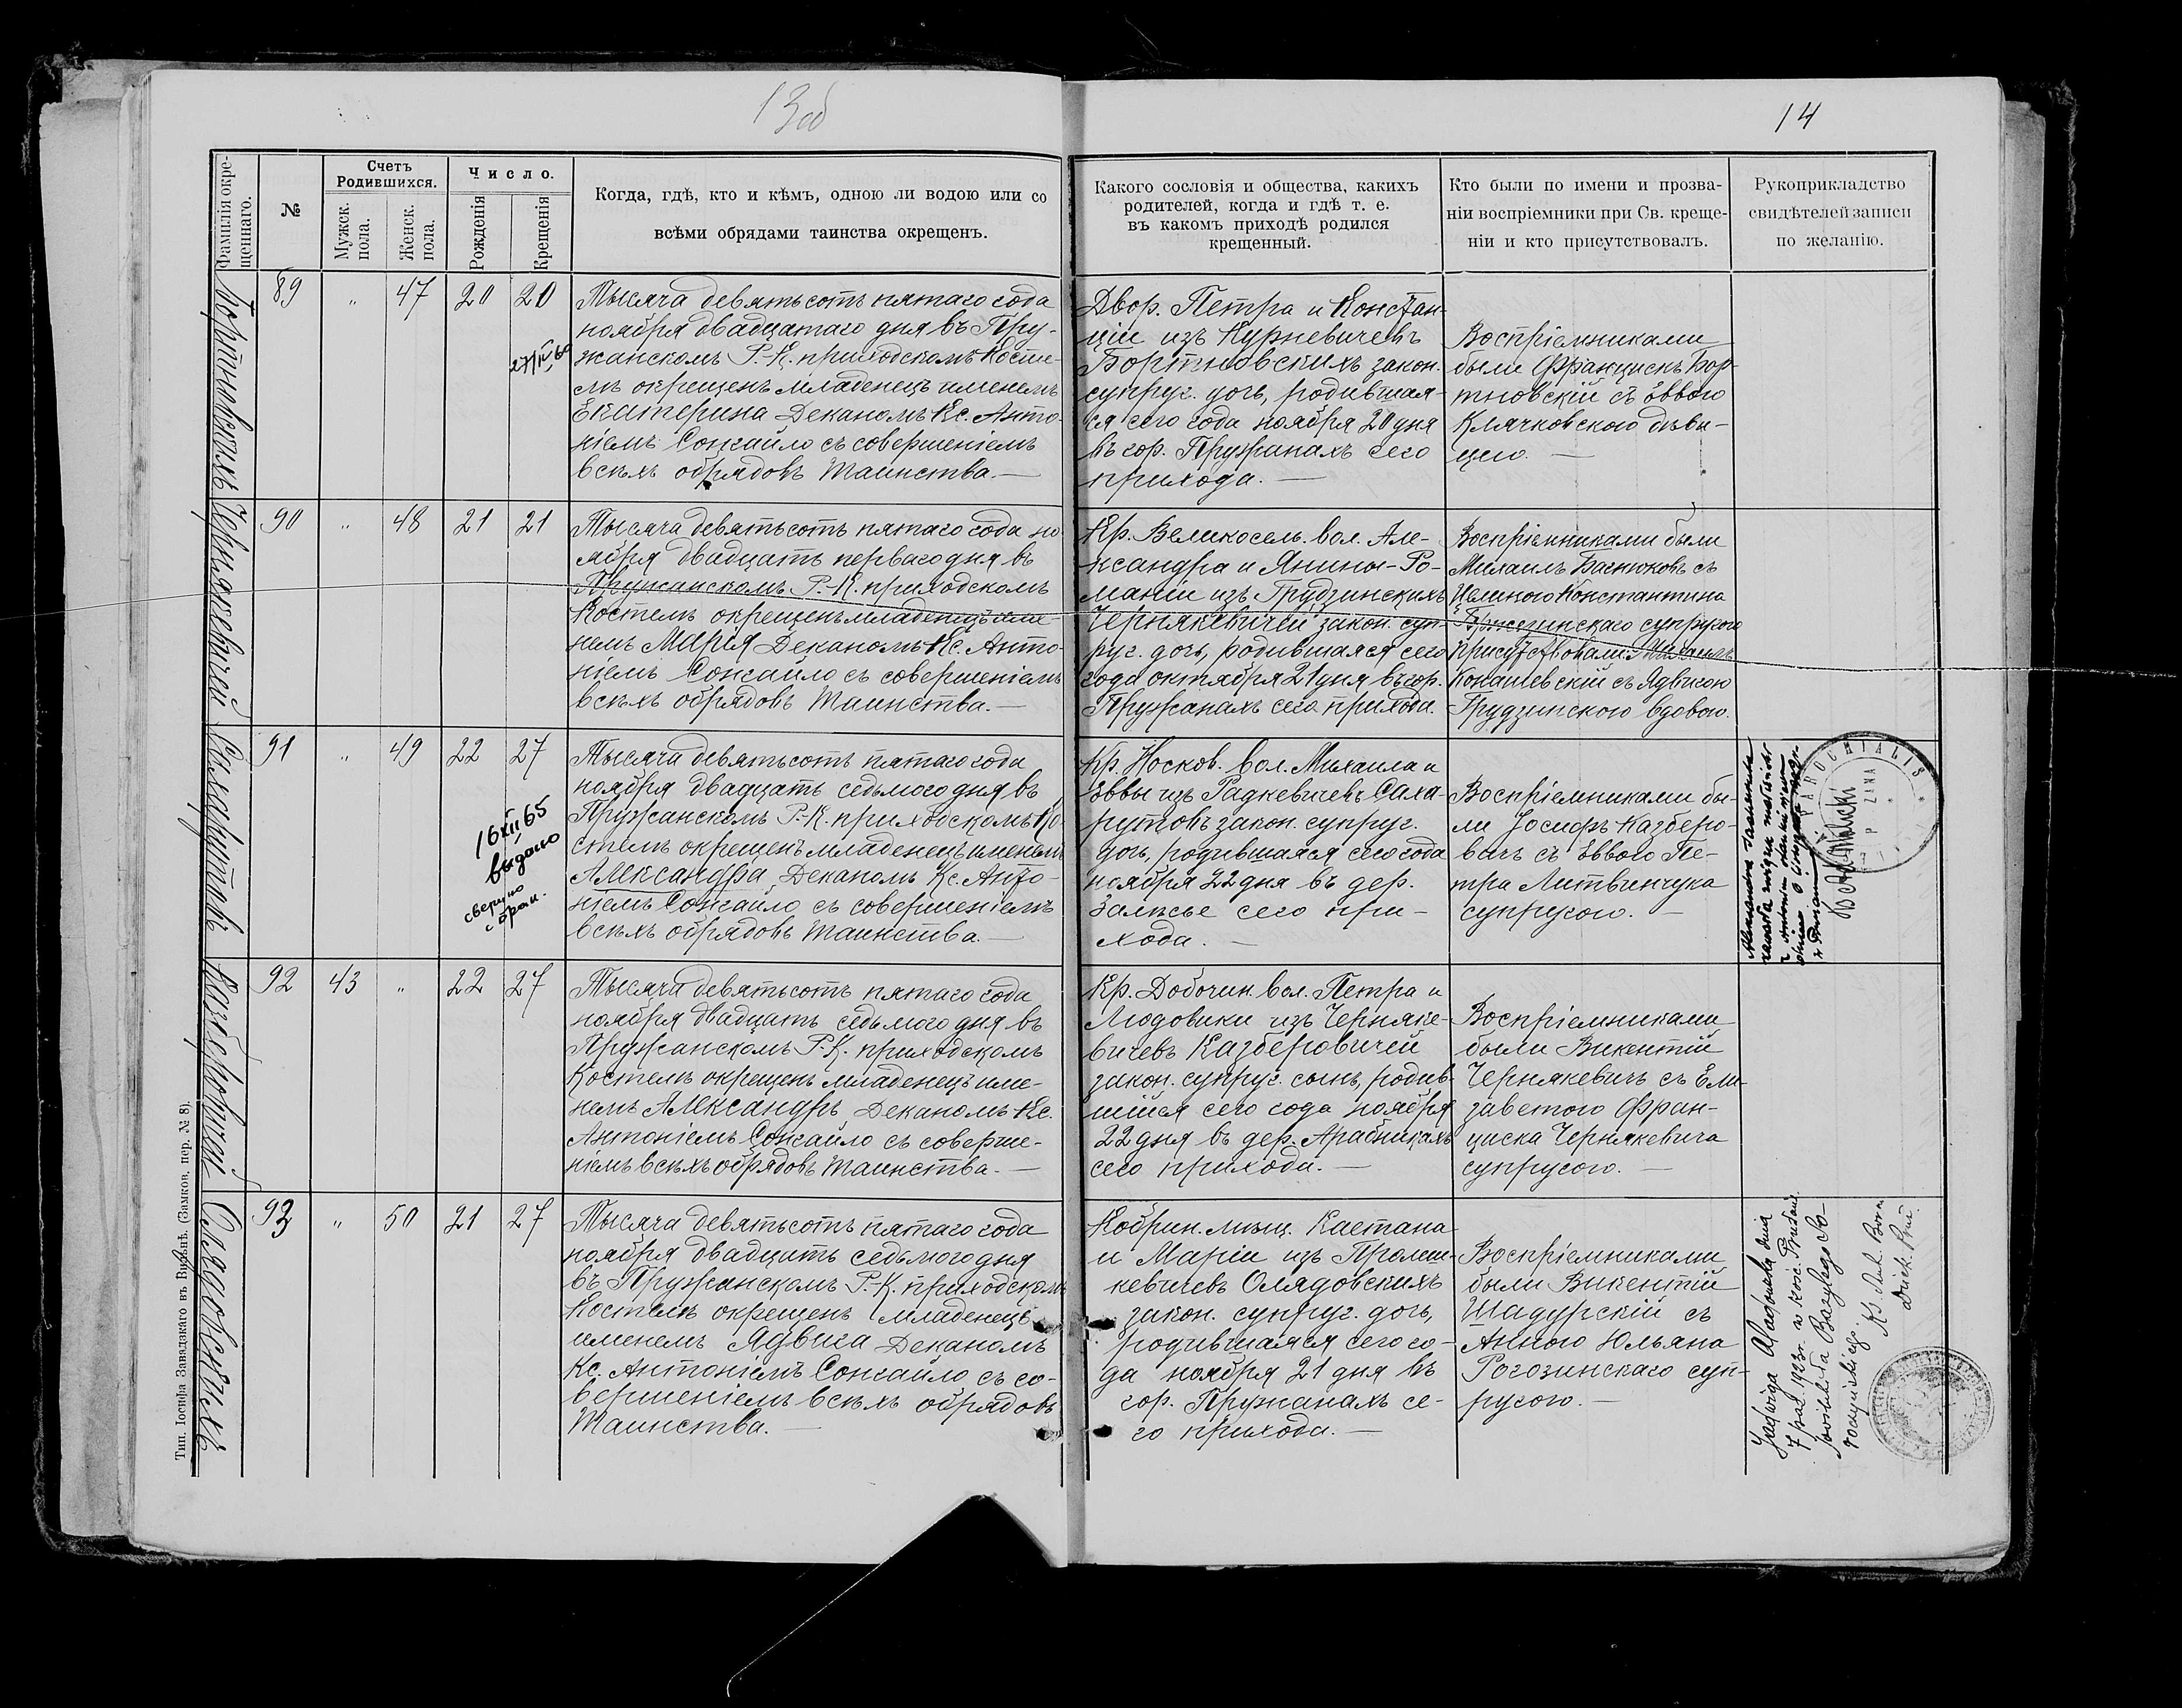 13об
14
Фамилія окре-
щеннаго.
№
Счетъ
Родившихся.
Мужск.
пола.
Женск.
пола.
Число.
Рожденія
Крещенія
Когда, гдѣ, кто и кѣмъ, одною ли водою или со
всѣми обрядами таинства окрещенъ.
Какого сословія и общества, какихъ
родителей, когда и гдѣ т. е.
въ какомъ приходѣ родился
крещенный.
Кто были по имени и прозва-
ніи воспріемники при Св. креще-
ніи и кто присутствовалъ.
Рукоприкладство
свидѣтелей записи
по желанію.
Бортновскихъ
89 „ 47 20 20
Тысяча девятьсотъ пятаго года
ноября двадцатаго дня въ Пру-
жанскомъ Р.-К. приходскомъ Косте-
лѣ окрещенъ младенецъ именемъ
Екатерина Деканомъ Кс. Анто-
ніемъ Сонгайло съ совершеніемъ
всѣхъ обрядовъ Таинства.—
Двор. Петра и Констан-
ціи изъ Курневичевъ
Бортновскихъ закон.
супруг. дочь, родившая-
ся сего года ноября 20 дня
въ гор. Пружанахъ сего
прихода.—
Воспріемниками
были Францискъ Бор-
тновскій съ Еввою
Клячковского дѣви-
цею.—
Чернякевичей
90 „ 48 21 21
Тысяча девятьсотъ пятаго года но
ября двадцать перваго дня въ
Пружанскомъ Р.-К. приходскомъ
Костелѣ окрещенъ младенецъ име-
немъ Марія Деканомъ Кс. Анто-
ніемъ Сонгайло съ совершеніемъ
всѣхъ обрядовъ Таинства.—
Кр. Великосель. вол. Але-
ксандра и Янины-Ро-
маніи изъ Грудзинскихъ
Чернякевичей закон. суп-
руг. дочь, родившаяся сего
года октября 21 дня въ гор.
Пружанахъ сего прихода.
Воспріемниками были
Михаилъ Банюковъ съ
Целиною Константина
супругою
присутствовали Михаилъ
Конашевскій съ Ядвигою
Грудзинскою вдовою.
Сахарутовъ
91 „ 49 22 27
16 XII 65
выдано
Тысяча девятьсотъ пятаго года
ноября двадцать седьмого дня въ
Пружанскомъ Р.-К. приходскомъ Ко-
стелѣ окрещенъ младенецъ именемъ
Александра Деканомъ Кс. Анто-
ніемъ Сонгайло съ совершеніемъ
всѣхъ обрядовъ Таинства.—
Кр. Носков. вол. Михаила и
Еввы изъ Радкевичевъ Саха-
рутовъ закон. супруг.
дочь, родившаяся сего года
ноября 22 дня въ дер.
Залѣсье сего при-
хода.—
Воспріемниками бы-
ли Іосифъ Казберо-
вичъ съ Еввою Пе-
тра Литвинчука
супругою.—
PAROCHIALIS
Казберовичей
92 43 „ 22 27
Тысяча девятьсотъ пятаго года
ноября двадцать седьмого дня въ
Пружанскомъ Р.-К. приходскомъ
Костелѣ окрещенъ младенецъ име-
немъ Александръ Деканомъ Кс.
Антоніемъ Сонгайло съ соверше-
ніемъ всѣхъ обрядовъ Таинства.—
Кр. Добочин. вол. Петра и
Людовики изъ Черняке-
вичевъ Казберовичей
закон. супруг. сынъ, родив-
шійся сего года ноября
22 дня въ дер. Арабникахъ
сего прихода.—
Воспріемниками
были Викентій
Чернякевичъ съ Ели-
заветою Фран-
циска Чернякевича
супругою.—
Олядовскихъ
93 „ 50 21 27
Тысяча девятьсотъ пятаго года
ноября двадцать седьмого дня
въ Пружанскомъ Р.-К. приходскомъ
Костелѣ окрещенъ младенецъ
именемъ Ядвига Деканомъ
Кс. Антоніемъ Сонгайло съ со-
вершеніемъ всѣхъ обрядовъ
Таинства.—
Кобрин. мѣщ. Каетана
и Маріи изъ Промин-
кевичевъ Олядовскихъ
закон. супруг. дочь,
родившаяся сего го-
да ноября 21 дня въ
гор. Пружанахъ се-
го прихода.—
Воспріемниками
были Викентій
Шадурскій съ
Анною Юльяна
Рогозинскаго суп-
ругою.—
Jadwiga Aladowska dnia
7 paź. 1923 r. w kośc. Prużań.
poślubiła Bazylego Ro-
Тип. Іосифа Завадзкаго въ Вильнѣ. (Замков. пер. № 8).